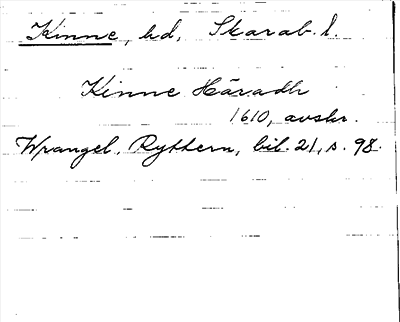 Kinne, hd, Skarab. l.
Kinne Häradh
1610, avskr.
Wrangel, Ryttern, bil. 21, s. 98.